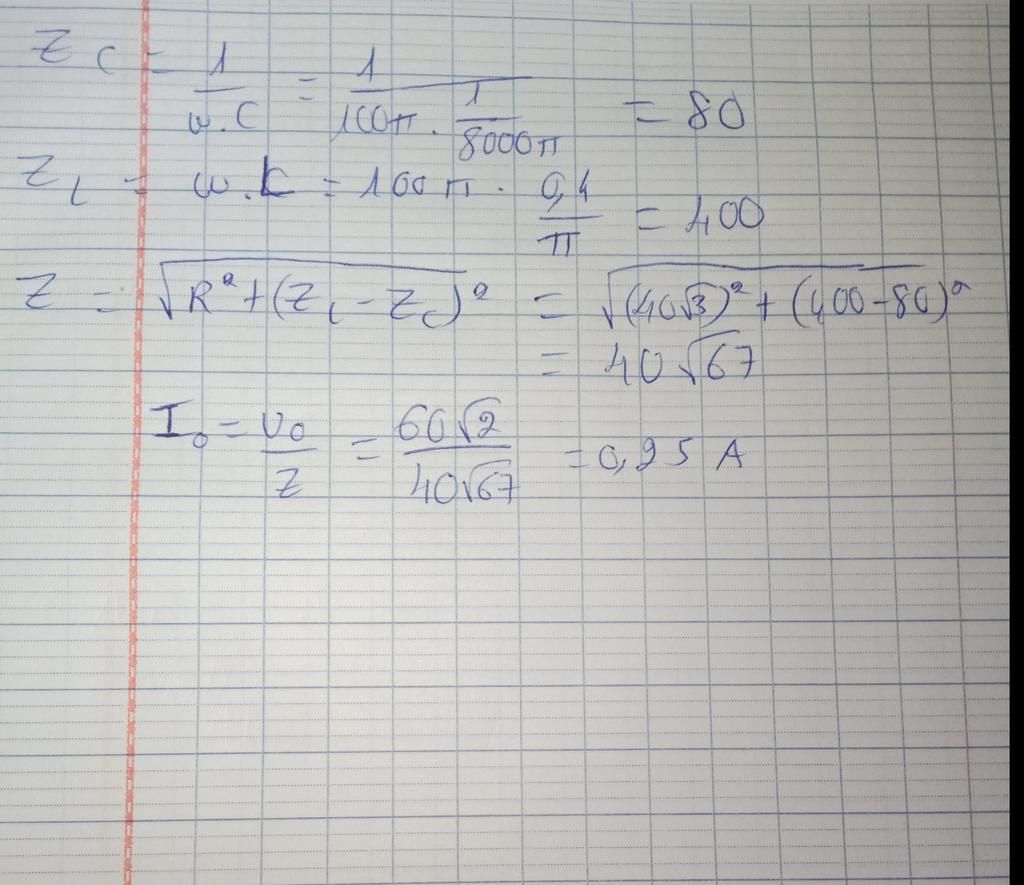 Z_C = 1/(ω.C) = 1/(100π . 1/(8000π)) = 80
Z_L = ω.L = 100π . 0,4/π = 400
Z = √(R² + (Z_L - Z_C)²) = √((40√3)² + (400 - 80)²)
= 40√67
I_0 = U_0/Z = 60√2/(40√67) = 0,25 A